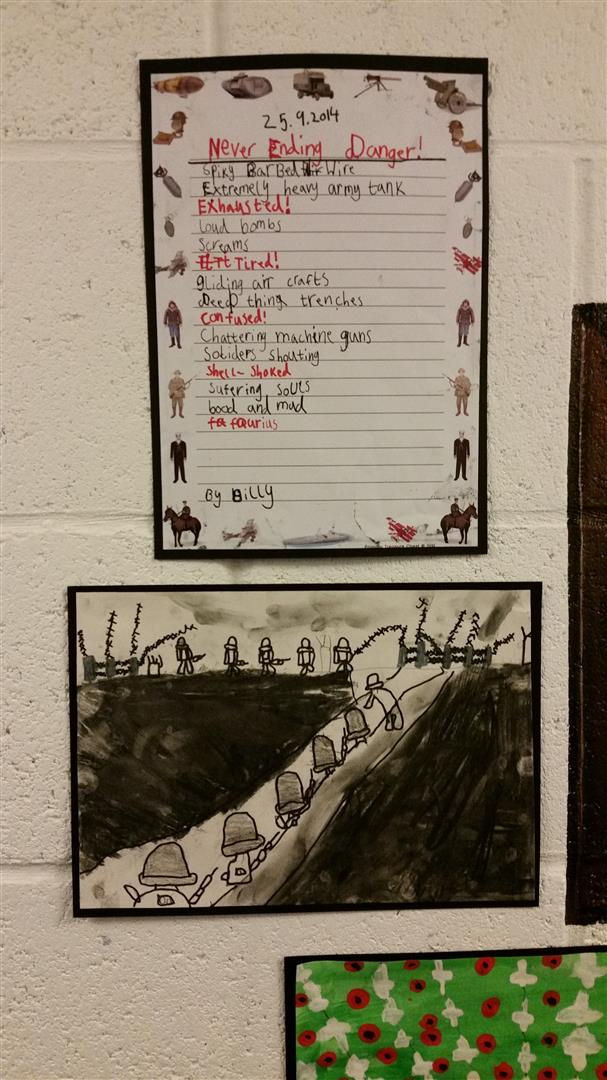 25.9.2014
Never Ending Danger!
Spiky Barbed Wire
Extremely heavy army tank
Exhausted!
loud bombs
Screams
Tired!
gliding air crafts
Deep thing trenches
Confused!
Chattering machine guns
Soliders shouting
Shell-Shoked
Sufering souls
bood and mud
By Billy